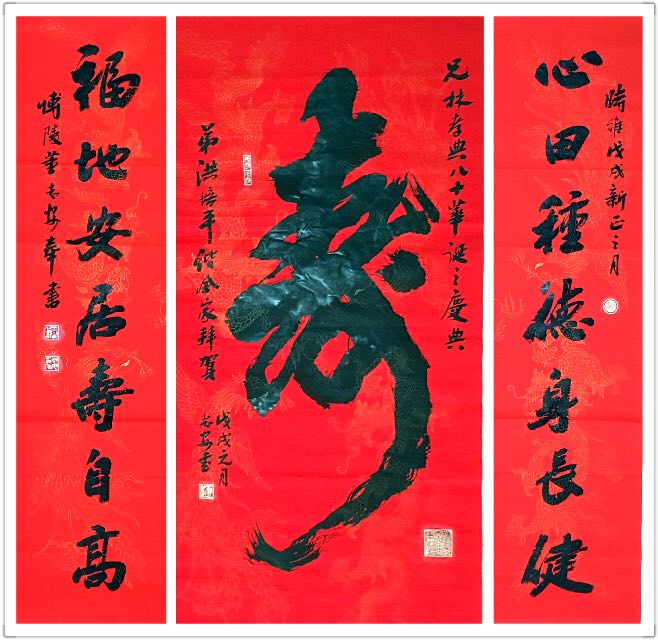 時維戊戌新正之月
心田種德身長健
兄林孝典八十華誕之慶典
壽
弟洪培平偕全家拜賀
戊戌元月
志安書
福地安居壽自高
博陵董志安奉書